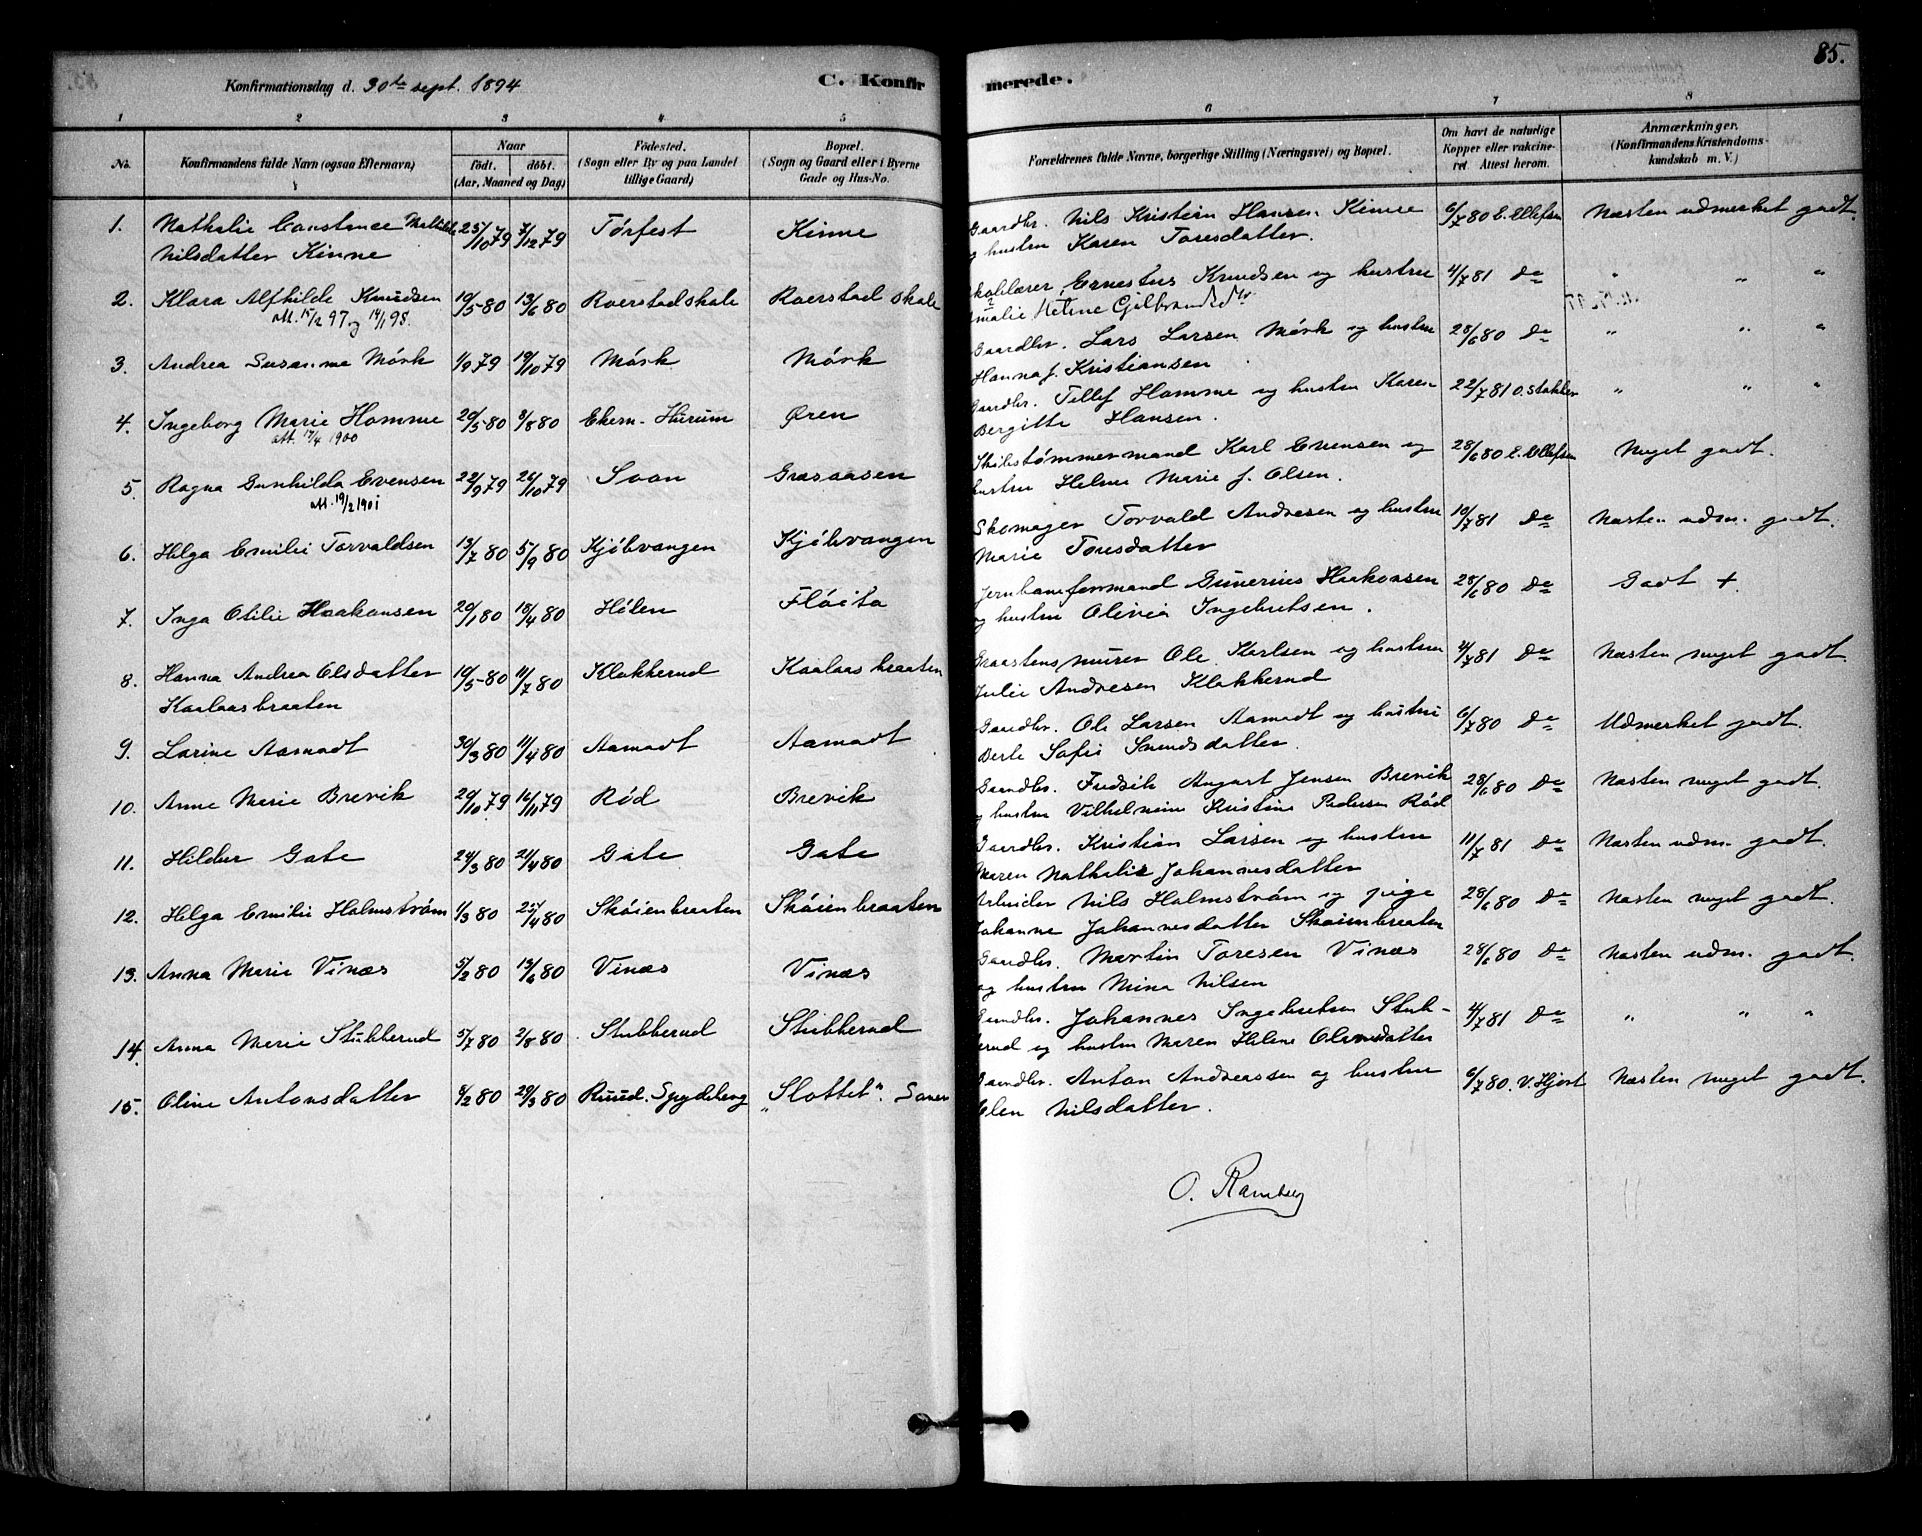 85.
Konfirmationsdag d. 30de sept. 1894
C. Konfirmerede.
1 2 3 4 5 6 7 8
No. Konfirmandens fulde Navn (ogsaa Efternavn) Naar födt. döbt. (Aar, Maaned og Dag) Födested. (Sogn eller By og paa Landet tillige Gaard) Bopæl. (Sogn og Gaard eller i Byerne Gade og Hus-No. Forældrenes fulde Navne, borgerlige Stilling (Næringsvei) og Bopæl. Om havt de naturlige Kopper eller vakcineret. Attest herom. Anmærkninger. (Konfirmandens Kristendomskundskab m. V.)
1. Nathalie Constance Mathilde 25/10 79 7/12 79 Tørfest Kinne Gaardbr. Nils Kristian Hansen Kinne 6/7 80 E. Ellefsen Næsten udmerket godt.
Nilsdatter Kinne og hustru Karen Toresdatter.
2. Klara Alfhilde Knudsen 19/5 80 13/6 80 Roerstadskole Roerstad skole Skolelærer Ernestus Knudsen og hustru 4/7 81 Do " " "
att. 15/2 97 og 14/1 98. Amalie Helene Gjelbrandsdtr.
3. Andrea Susanne Mörk 1/9 79 19/10 79 Mörk Mörk Gaardbr. Lars Larsen Mörk og hustru 28/6 80 Do " " "
Hanna f. Kristiansen
4. Ingeborg Marie Homme 20/5 80 3/8 80 Ekern - Hurum Øren Gaardbr. Tellef Homme og hustru Karen 22/7 81 O. Stakker " " "
att. 17/4 1900 Bergitte Hansen.
5. Ragna Gunhilda Evensen 22/9 79 26/10 79 Soon Græsaasen Skibstømmermand Karl Evensen og 28/6 80 E. Ellefsen Meget godt.
att. 19/2 1901 hustru Helene Marie f. Olsen.
6. Helga Emilie Torvaldsen 13/7 80 5/9 80 Kjölvangen Kjölvangen Skomager Torvald Andresen og hustru 10/7 81 Do Næsten udm. godt.
Marie Toresdatter
7. Inga Otilie Haakonsen 20/1 80 18/4 80 Hölen Flöita Jernbaneformand Gunerius Haakonsen 28/6 80 Do Godt +.
og hustru Olivia Ingebretsen.
8. Hanna Andrea Olsdatter 19/5 80 11/7 80 Klokkerud Kaalaasbraaten Graastensmurer Ole Karlsen og hustru 4/7 81 Do Næsten meget godt.
Kaalaasbraaten Julie Andresen Klokkerud
9. Larine Aamodt 30/3 80 11/4 80 Aamodt Aamodt Gaardbr. Ole Larsen Aamodt og hustru 6/7 80 Do Udmerket godt.
Berte Sofie Svendsdatter.
10. Anne Marie Brevik 20/10 79 16/11 79 Röd Brevik Gaardbr. Fredrik August Jensen Brevik 28/6 80 Do Næsten meget godt.
og hustru Vilhelmine Kristine Pedersen Röd
11. Hildur Gate 24/3 80 21/4 80 Gate Gate Gaardbr. Kristian Larsen og hustru 11/7 81 Do Næsten udm. godt.
Maren Nathalie Johannesdatter
12. Helga Emilie Holmström 1/3 80 25/4 80 Sköienbraaten Sköienbraaten Arbeider Nils Holmström og pige 28/6 80 Do Næsten meget godt.
Johanne Johannesdatter Sköienbraaten
13. Anna Marie Vinæs 5/2 80 13/6 80 Vinæs Vinæs Gaardbr. Martin Toresen Vinæs 28/6 80 Do Næsten udm. godt.
og hustru Mina Nilsen
14. Anna Marie Stubberud 5/7 80 2/8 80 Stubberud Stubberud Gaardbr. Johannes Ingebretsen Stub- 4/7 81 Do " " "
berud og hustru Maren Helene Olsendatter
15. Oline Antonsdatter 8/2 80 29/3 80 Ruud. Spydeberg "Slottet". Soner Gaardbr. Anton Andreassen og hustru 6/7 80. V. Hjort Næsten meget godt.
Elen Nilsdatter.
O. Ramberg